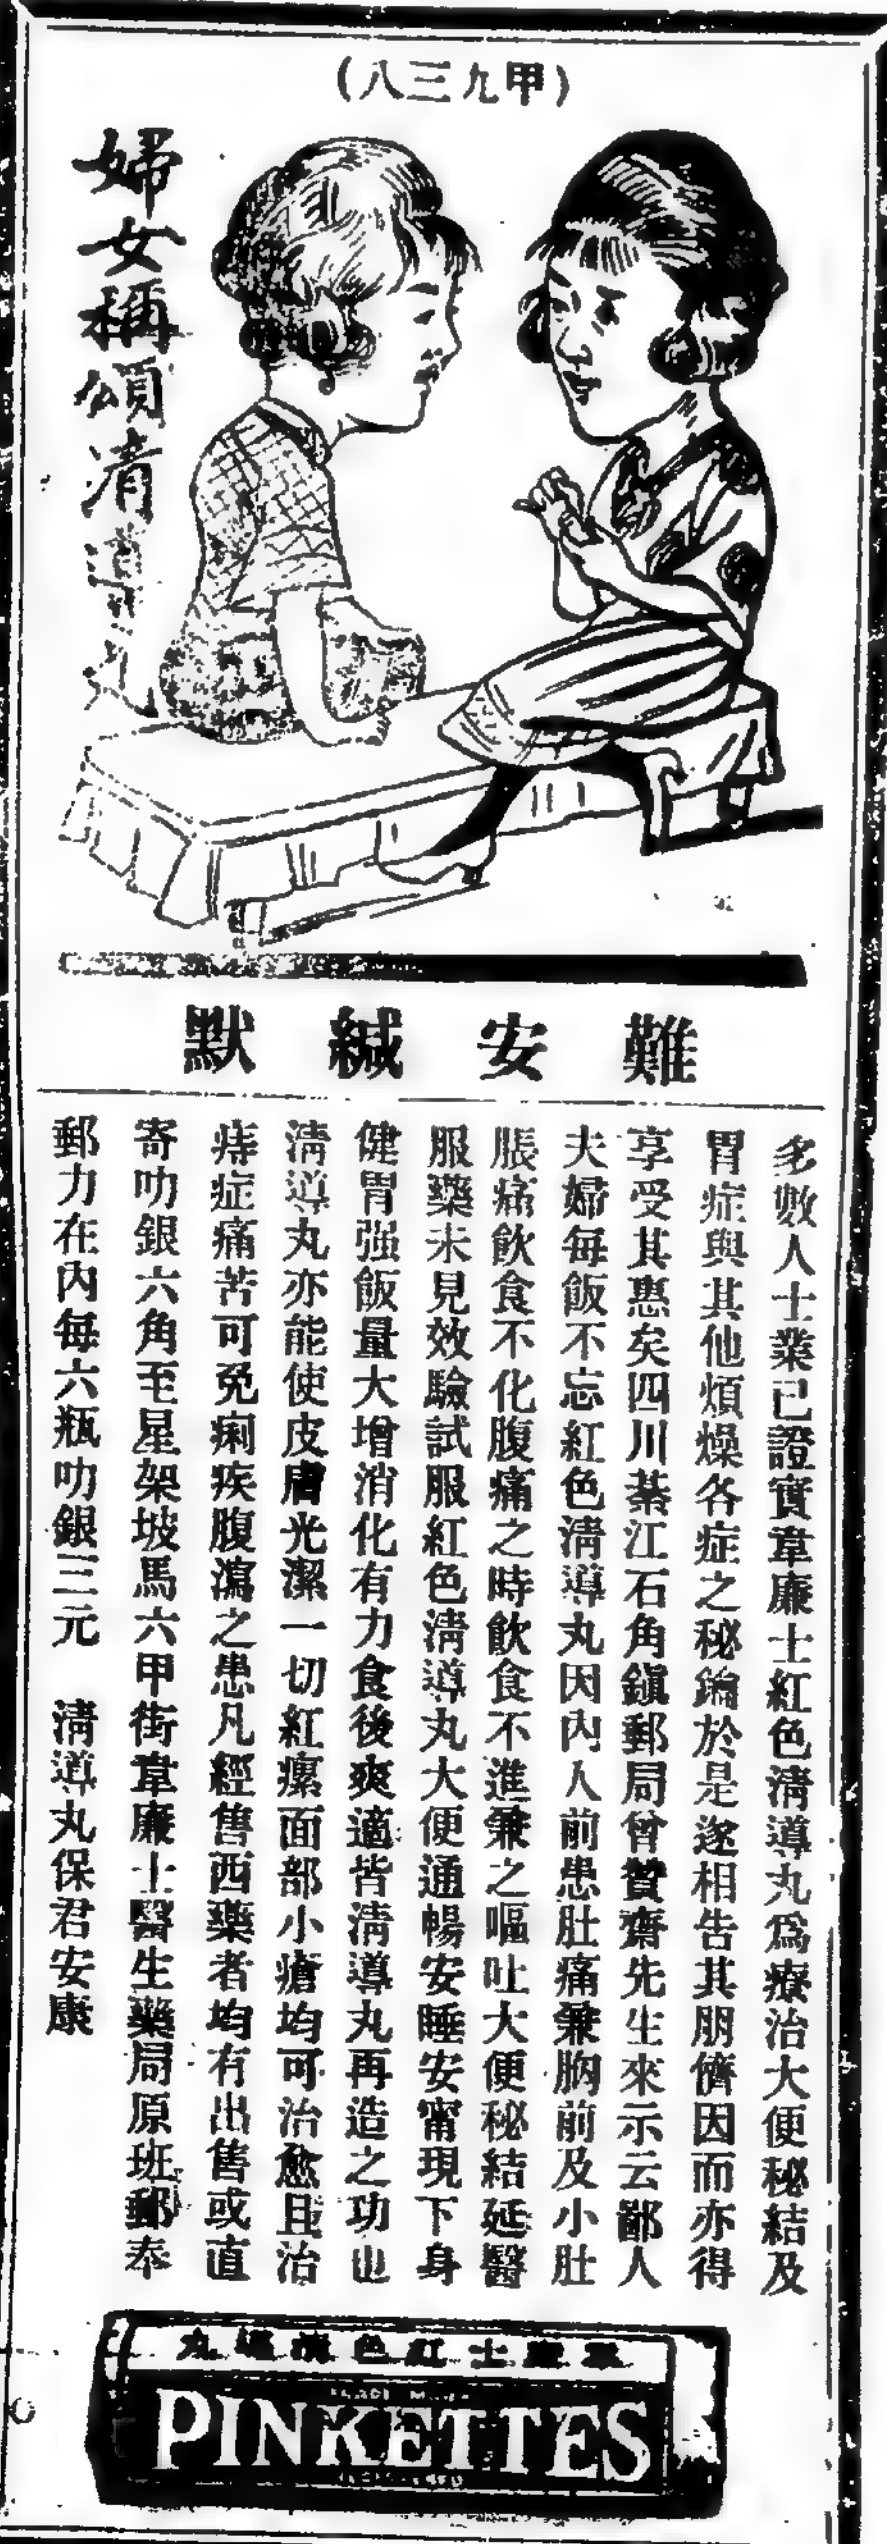 (甲九三八)
婦女稱頌清導丸
難安緘默
多數人士業已證實韋廉士紅色清導丸爲療治大便秘結及
胃症與其他煩燥各症之秘鑰於是遂相告其朋儕因而亦得
享受其惠矣四川綦江石角鎭郵局曾贊齋先生來示云鄙人
夫婦每飯不忘紅色清導丸因內人前患肚痛兼胸前及小肚
脹痛飲食不化腹痛之時飲食不進兼之嘔吐大便秘結延醫
服藥未見效驗試服紅色清導丸大便通暢安睡安甯現下身
健胃强飯量大增消化有力食後爽適皆清導丸再造之功也
清導丸亦能使皮膚光潔一切紅瘰面部小瘡均可治愈且治
痔症痛苦可免痢疾腹瀉之患凡經售西藥者均有出售或直
寄叻銀六角至星架坡馬六甲街韋廉士醫生藥局原班郵奉
郵力在內每六瓶叻銀三元 清導丸保君安康
韋廉士紅色清導丸
TRADE MARK
PINKETTES